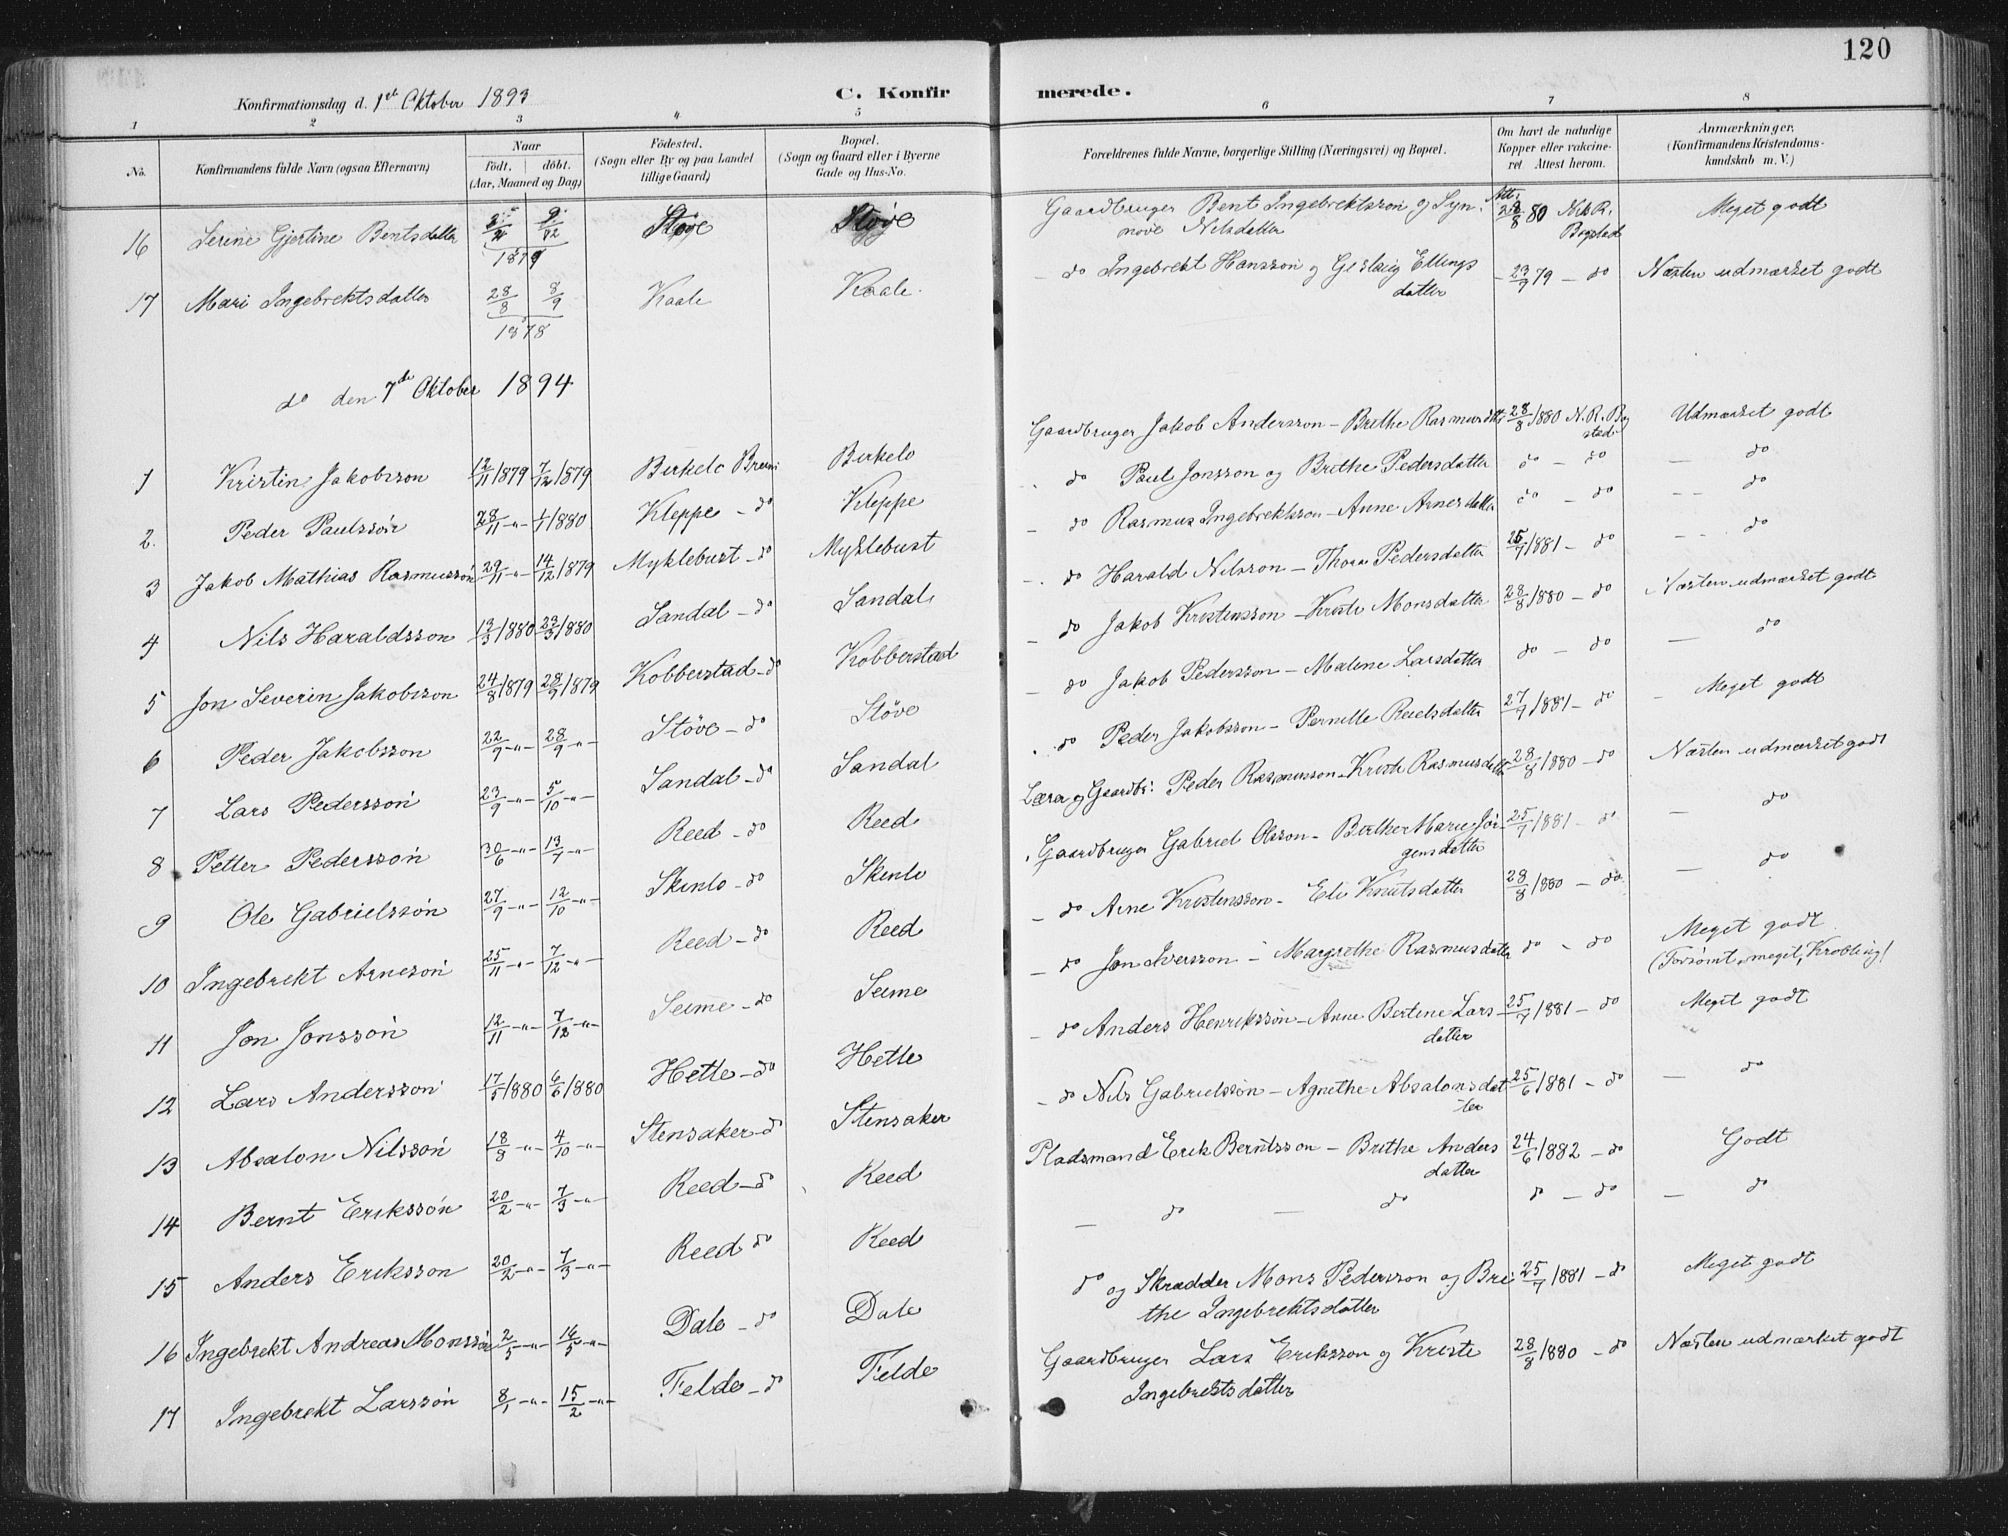 120
Konfirmationsdag d. 1ste Oktober 1893
C. Konfirmerede.
1 2 3 4 5 6 7 8
No.
Konfirmandens fulde Navn (ogsaa Efternavn)
Naar
födt. döbt.
(Aar, Maaned og Dag)
Födested.
(Sogn eller By og paa Landet
tillige Gaard)
Bopæl.
(Sogn og Gaard eller i Byerne
Gade og Hus-No.
Forældrenes fulde Navne, borgerlige Stilling (Næringsvei) og Bopæl.
Om havt de naturlige
Kopper eller vakcine-
ret Attest herom.
Anmærkninger.
(Konfirmandens Kristendoms-
kundskab m. V.)
16 Serine Gjertine Bentsdatter 1879 Støve Støve Gaardbruger Bent Ingebrektsson og Synnøve Nilsdatter Att: 28/8 80 Nils R. Bogstad Meget godt
17 Mari Ingebrektsdatter 28/8 8/9 1878 Kaale Kaale do Ingebrekt Hansson og Gislaug Ellingsdatter 23/9 79 - do Næsten udmærket godt
do den 7de Oktober 1894
1 Kristin Jakobsson 12/11 1879 7/12 1879 Birkelo Breim Birkelo Gaardbruger Jakob Andersson - Brithe Rasmusdtr 28/8 1880 N. R. Bogstad Udmærket godt
2. Peder Paulssön 28/11 -"- 1/1 1880 Kleppe - do Kleppe do Paul Jonsson og Brithe Pedersdatter do - do - do
3 Jakob Mathias Rasmussön 29/11 -"- 14/12 1879 Myklebust - do Myklebust - do Rasmus Ingebrektsson - Anne Arnesdatter do - do -- do
4 Nils Haraldsson 13/3 1880 23/3 1880 Sandal - do Sandal do Harald Nilsson - Thora Pedersdatter 25/7 1881 - do -- do
5 Jon Severin Jakobsson 24/8 1879 28/9 1879 Kobberstad - do Kobberstad - do Jakob Kristensson - Kriste Monsdatter 28/8 1880 - do Næsten udmærket godt
6 Peder Jakobsson 22/9 -"- 28/9 -"- Støve - do Støve - do Jakob Pedersson - Malene Larsdatter do - do - do
7 Lars Pederssön 23/9 -"- 5/10 -"- Sandal - do Sandal do Peder Jakobsson - Pernille Reielsdatter 27/9 1881 - do - Meget godt
8 Petter Pederssön 30/6 -"- 13/7 -"- Reed - do Reed Lærer og Gaardbr: Peder Rasmusson - Kriste Rasmusdatter 28/8 1880 - do Næsten udmærket godt
9 Ole Gabrielssön 27/9 -"- 12/10 -"- Skinlo - do Skinlo Gaardbruger Gabriel Olsson - Birthe Marie Jörgensdatter 25/7 1881 - do - do
10 Ingebrekt Arnesön 25/11 -"- 7/12 -"- Reed - do Reed - do Arne Kristensson - Eli Knutsdatter 28/8 1880 - do - do
11 Jon Jonssön 12/11 -"- 7/12 -"- Seime - do Seime - do Jon Iversson - Margrethe Rasmusdatter do - do Meget godt (Forsømt meget, Krobling)
12 Lars Andersson 17/5 1880 6/6 1880 Hette - do Hette - do Anders Henrikssön - Anne Bertine Larsdatter 25/7 1881 - do Meget godt
13 Absalon Nilssön 18/8 -"- 4/10 -"- Stensaker - do Stensaker - do Nils Gabrielssön - Agnethe Absalonsdatter 25/6 1881 - do - do
14 Bernt Erikssön 20/2 -"- 7/3 -"- Reed - do Reed Pladsmand Erik Berntsson - Brithe Andersdatter 24/6 1882 - do Godt
15 Anders Eriksson 20/2 -"- 7/3 -"- Reed do Reed - do - do do - do - do
16 Ingebrekt Andreas Monssön 2/5 -"- 16/5 -"- Dale - do Dale do og Skrædder Mons Pedersson og Brithe Ingebrektsdatter 25/7 1881 - do Meget godt
17 Ingebrekt Larssön 8/1 -"- 15/2 -"- Felde - do Felde Gaardbruger Lars Eriksson og Kriste Ingebrektsdatter 28/8 1880 - do Næsten udmærket godt